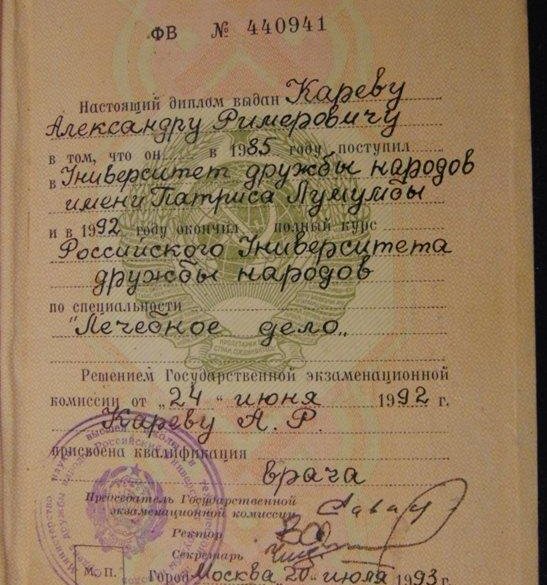 ФВ № 440941
Настоящий диплом выдан Кареву
Александру Римеровичу
в том, что он в 1985 году поступил
в Университет дружбы народов
имени Патриса Лумумбы
и в 1992 году окончил полный курс
Российского Университета
дружбы народов
по специальности
"Лечебное дело"
Решением Государственной экзаменационной
комиссии от „24“ июня 1992 г.
Кареву А. Р.
присвоена квалификация
врача
Председатель Государственной
экзаменационной комиссии
Ректор
Секретарь
М. П.
Город Москва 20 июля 1993 г.